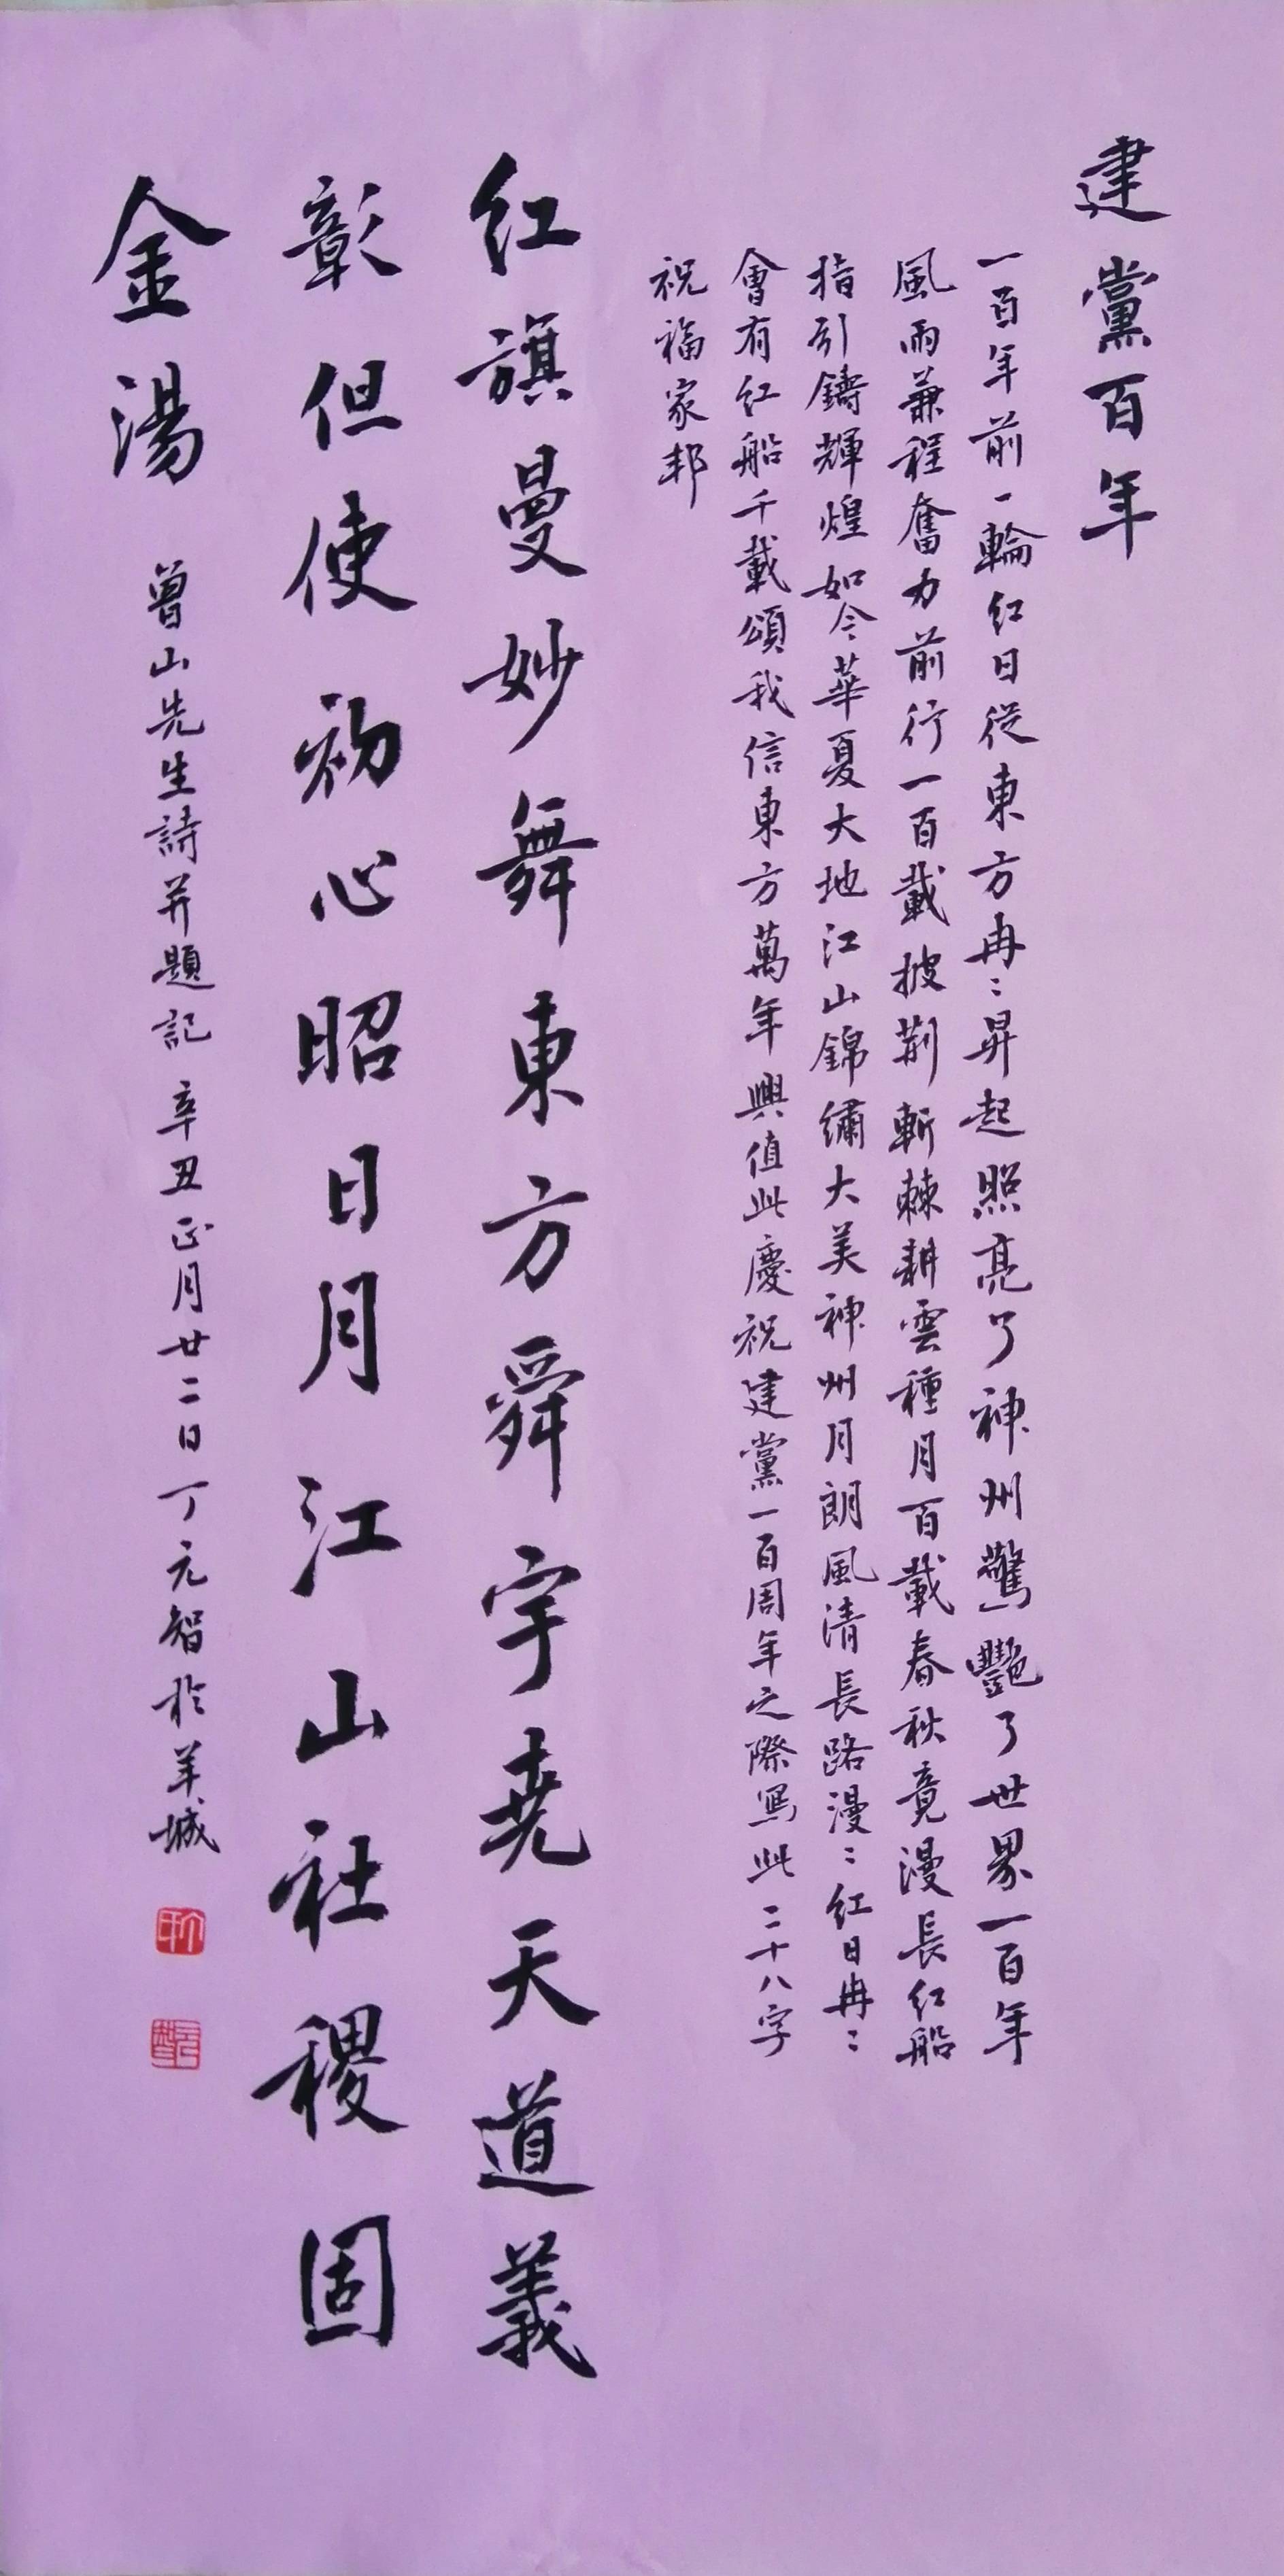 建黨百年
一百年前一輪红日從東方冉〻昇起照亮了神州驚艷了世界一百年
風雨兼程奮力前行一百載披荆斬棘耕雲種月百載春秋竟漫長红船
指引鑄輝煌如今華夏大地江山錦繡大美神州月朗風清長路漫〻红日冉〻
會有红船千載頌我信東方萬年興值此慶祝建黨一百周年之際寫此二十八字
祝福家邦
红旗曼妙舞東方舜宇尭天道義
彰但使初心昭日月江山社稷固
金湯
曾山先生詩并題記 辛丑正月廿二日丁元智於羊城